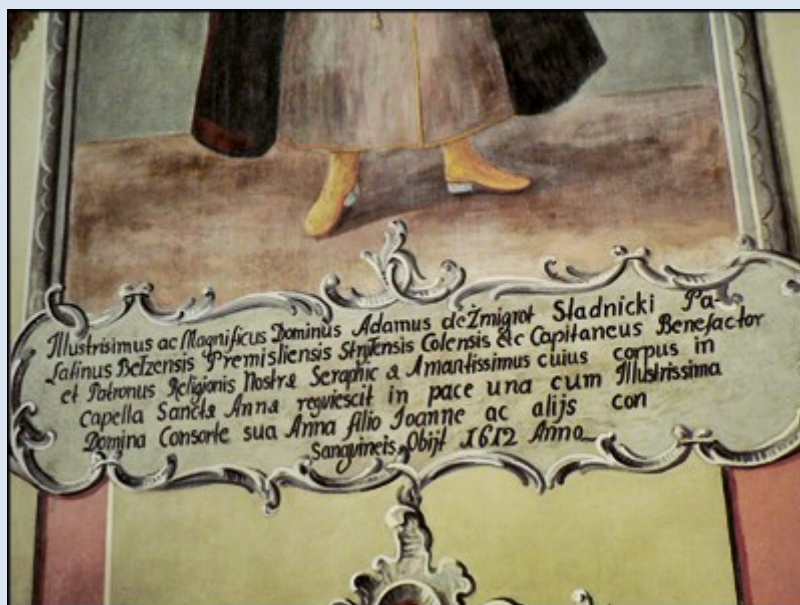 Illustrisimus ac Magnificus Dominus Adamus de Żmigrot Stadnicki Pa-
latinus Bełzensis Premisliensis Strÿensis Colensis etc Capitaneus Benefactor
et Patronus Religionis Nostræ Seraphicæ Amantissimus cuius corpus in
Capella Sanctæ Annæ reqviescit in pace una cum Illustrissima
Domina Consorte sua Anna filio Ioanne ac alijs con
Sangvineis, Obijt 1612 Anno